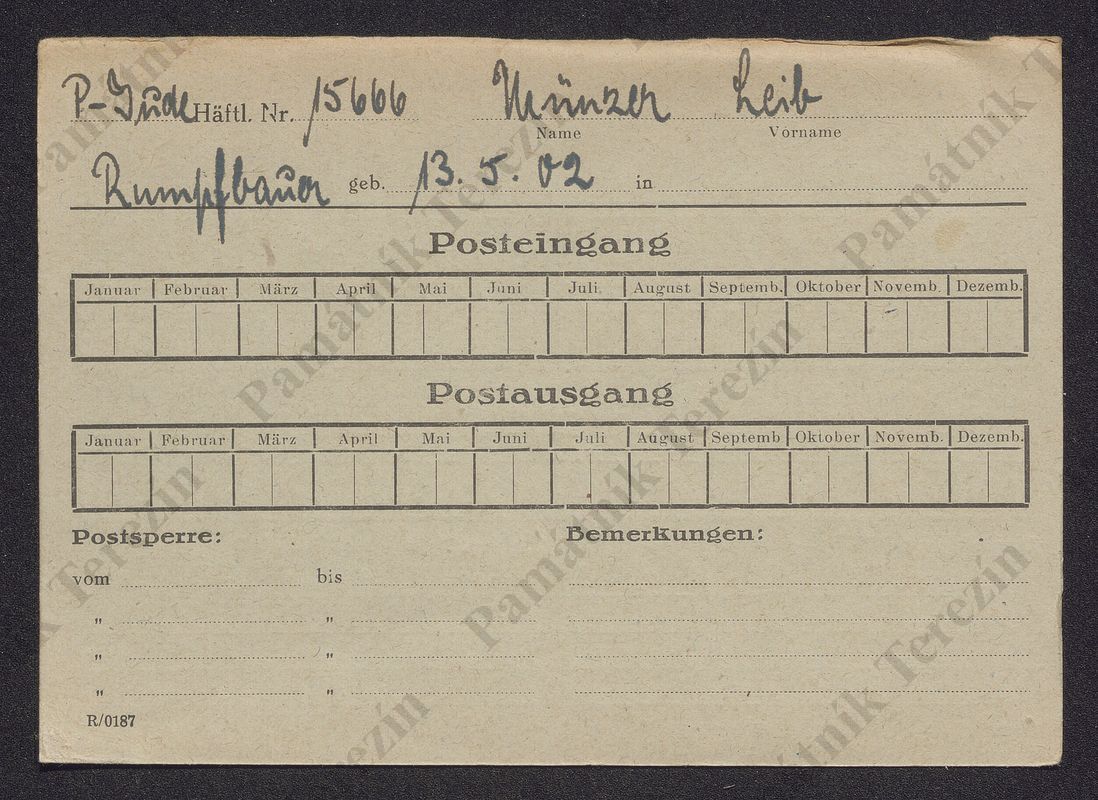 P-Jude Häftl. Nr. 15666 Münzer Leib
Name Vorname
Rumpfbauer geb. 13. 5. 02 in
Posteingang
Januar Februar März April Mai Juni Juli August Septemb. Oktober Novemb. Dezemb.
Postausgang
Januar Februar März April Mai Juni Juli August Septemb Oktober Novemb. Dezemb.
Postsperre: Bemerkungen:
vom bis
" "
" "
" "
R/0187
Památník Terezín